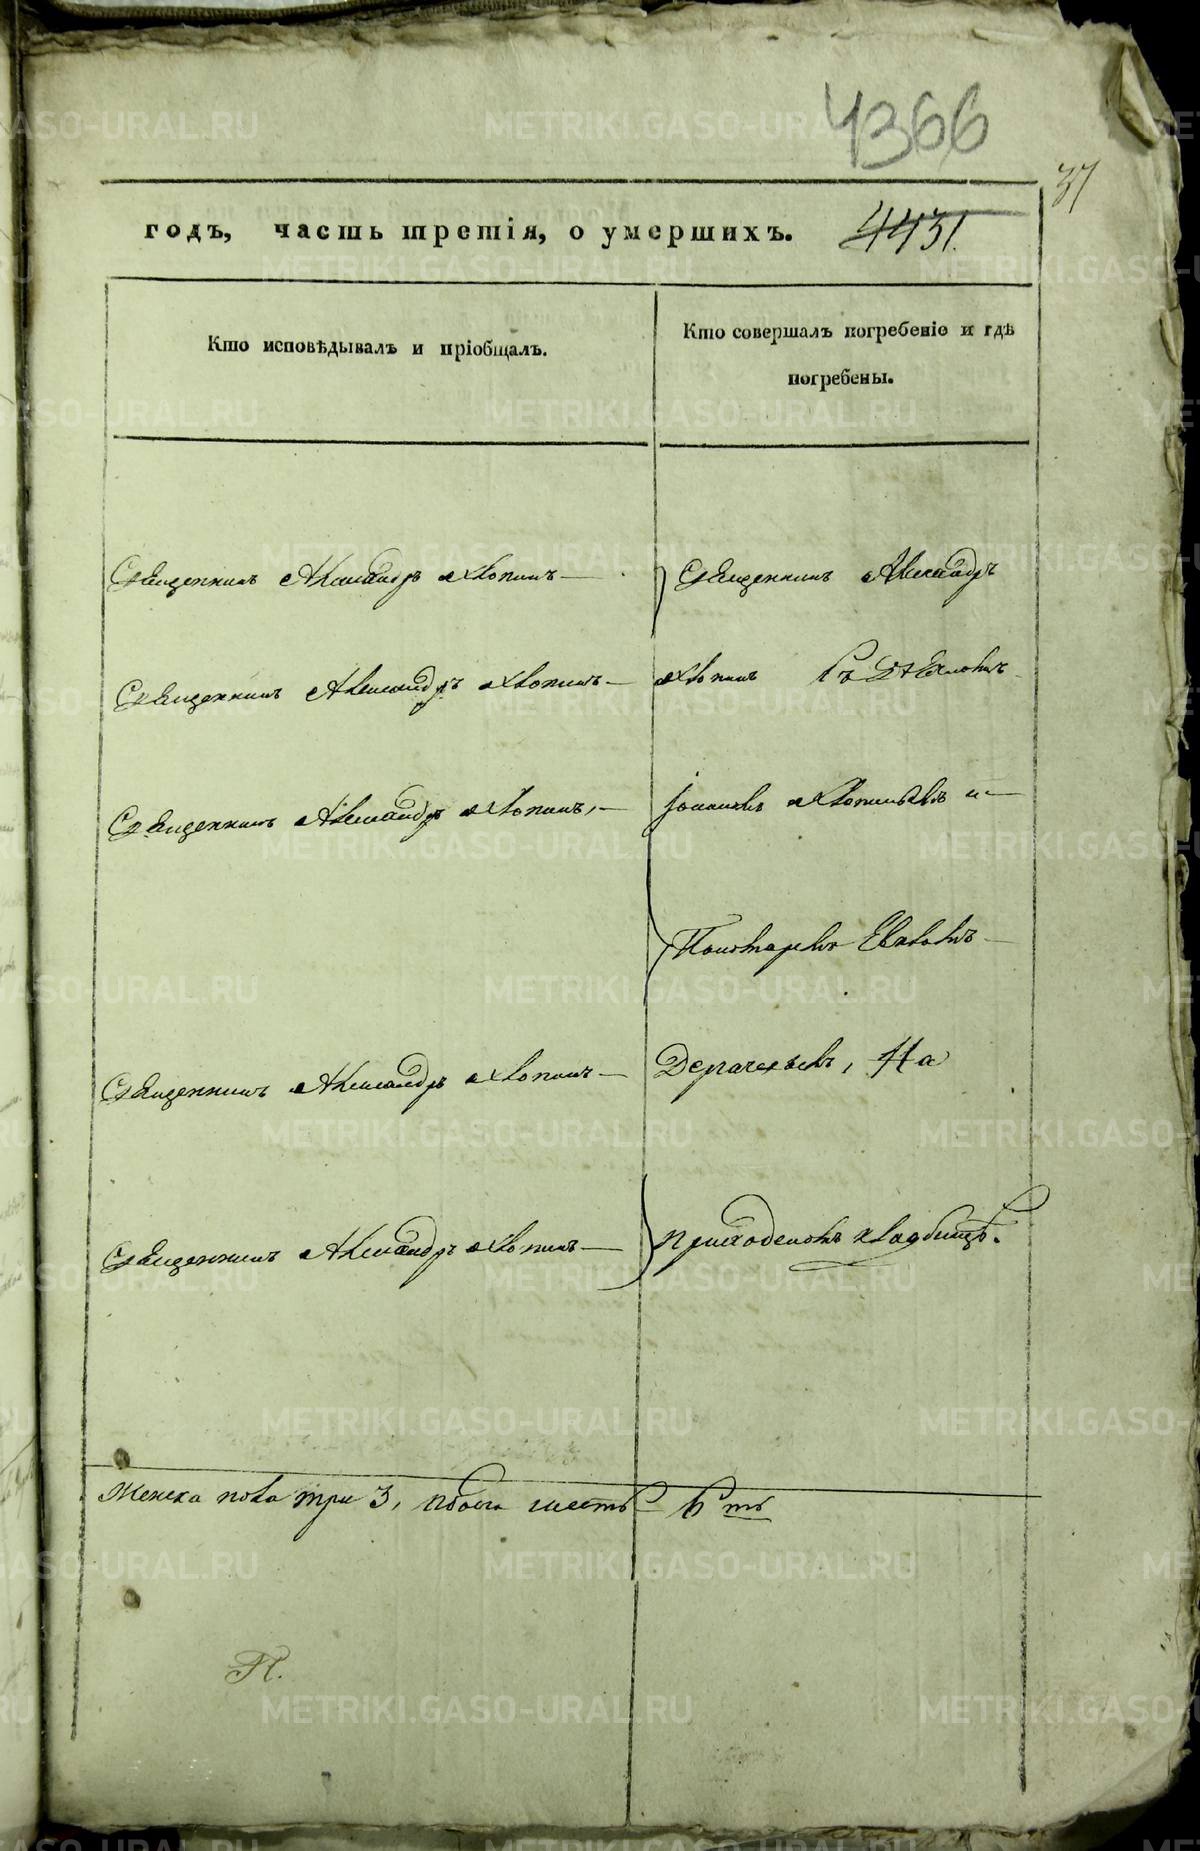 4366
37
годъ, часть третія, о умершихъ.
4431.
Кто исповѣдывалъ и пріобщалъ.
Кто совершалъ погребеніе и гдѣ
погребены.
Священникъ Александръ Хлопинъ
Священникъ Александръ
Священникъ Александръ Хлопинъ
Хлопинъ съ Дьячкомъ
Священникъ Александръ Хлопинъ,
и
Пономаремъ
Священникъ Александръ Хлопинъ
На
Священникъ Александръ Хлопинъ
приходскомъ кладбищѣ.
Женска пола три 3, обоего шесть 6ть
П.
METRIKI.GASO-URAL.RU